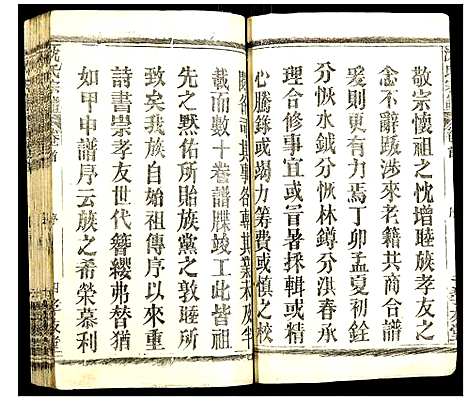 敬宗懷祖之忱增睦族孝友之
念不辭跋涉來老籍共商合譜
爰則更有力焉丁卯孟夏初銓
分恢水鉞分恢林鐏分淇春承
理合修事宜或冒暑採輯或精
心騰錄或竭力籌費或慎之校
閱各司其事各專其業未及半
載而數十卷譜牒竣工此皆祖
先之黙佑所貽族黨之敦睦所
致矣我族自始祖傳序以來
詩書崇孝友世代簪纓弗替猶
如甲申譜序云族之希榮慕利